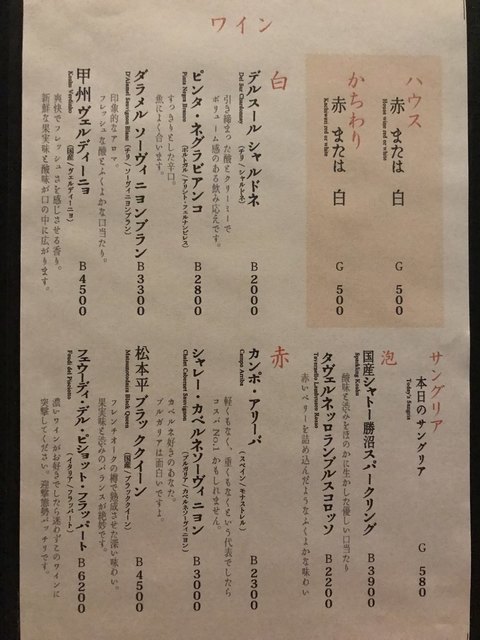 ワイン
ハウス
赤 または 白 G 500
House wine red or white
かちわり
赤 または 白 G 500
Kachiwari red or white
白
デルスール シャルドネ B 2000
Del Sur Chardonnay (チリ / シャルドネ)
引き締まった酸とクリーミーで
ボリューム感のある飲み応えです。
ピンタ・ネグラビアンコ B 2800
Pinta Negra Branco (ポルトガル / アリント・フェルナンピレス)
すっきりとした辛口。
魚によく合います。
ダラメル ソーヴィニョンブラン B 3300
D'Alamel Sauvignon Blanc (チリ / ソーヴィニヨンブラン)
印象的なアロマ。
フレッシュな酸とふくよかな口当たり。
甲州 ヴェルディーニョ B 4500
Koshu Verdelho (国産 / ヴェルディーニョ)
爽快でフレッシュさを感じさせる香り。
新鮮な果実味と酸味が口の中に広がります。
サングリア
本日のサングリア G 580
Today's Sangria
泡
国産シャトー勝沼スパークリング B 3900
Sparkling Katsu
酸味と渋みをほのかに生かした優しい口当たり
タヴェルネッロランブルスコロッソ B 2200
Tavernello Lambrusco Rosso
赤いベリーを詰め込んだようなふくよかな味わい
赤
カンポ・アリーバ B 2300
Campo Arriba (スペイン / モナストレル)
軽くもなく、重くもなくという代表でしたら
コスパ No.1 かもしれません。
シャレー・カベルネソーヴィニヨン B 3000
Chalet Cabernet Sauvignon (ブルガリア / カベルネソーヴィニヨン)
カベルネ好きのあなた。
ブルガリアは面白いですよ。
松本平ブラッククイーン B 4500
Matsumotodaira Black Queen (国産 / ブラッククイーン)
フレンチオークの樽で熟成させた深い味わい。
果実味と渋みのバランスが絶妙です。
フェウーディ・デル・ピショット・フラッパート B 6200
Feudi del Pisciotto (イタリア / フラッパート)
濃いワインがお好きでしたら迷わずこのワインに
突撃してください。迎撃態勢バッチリです。